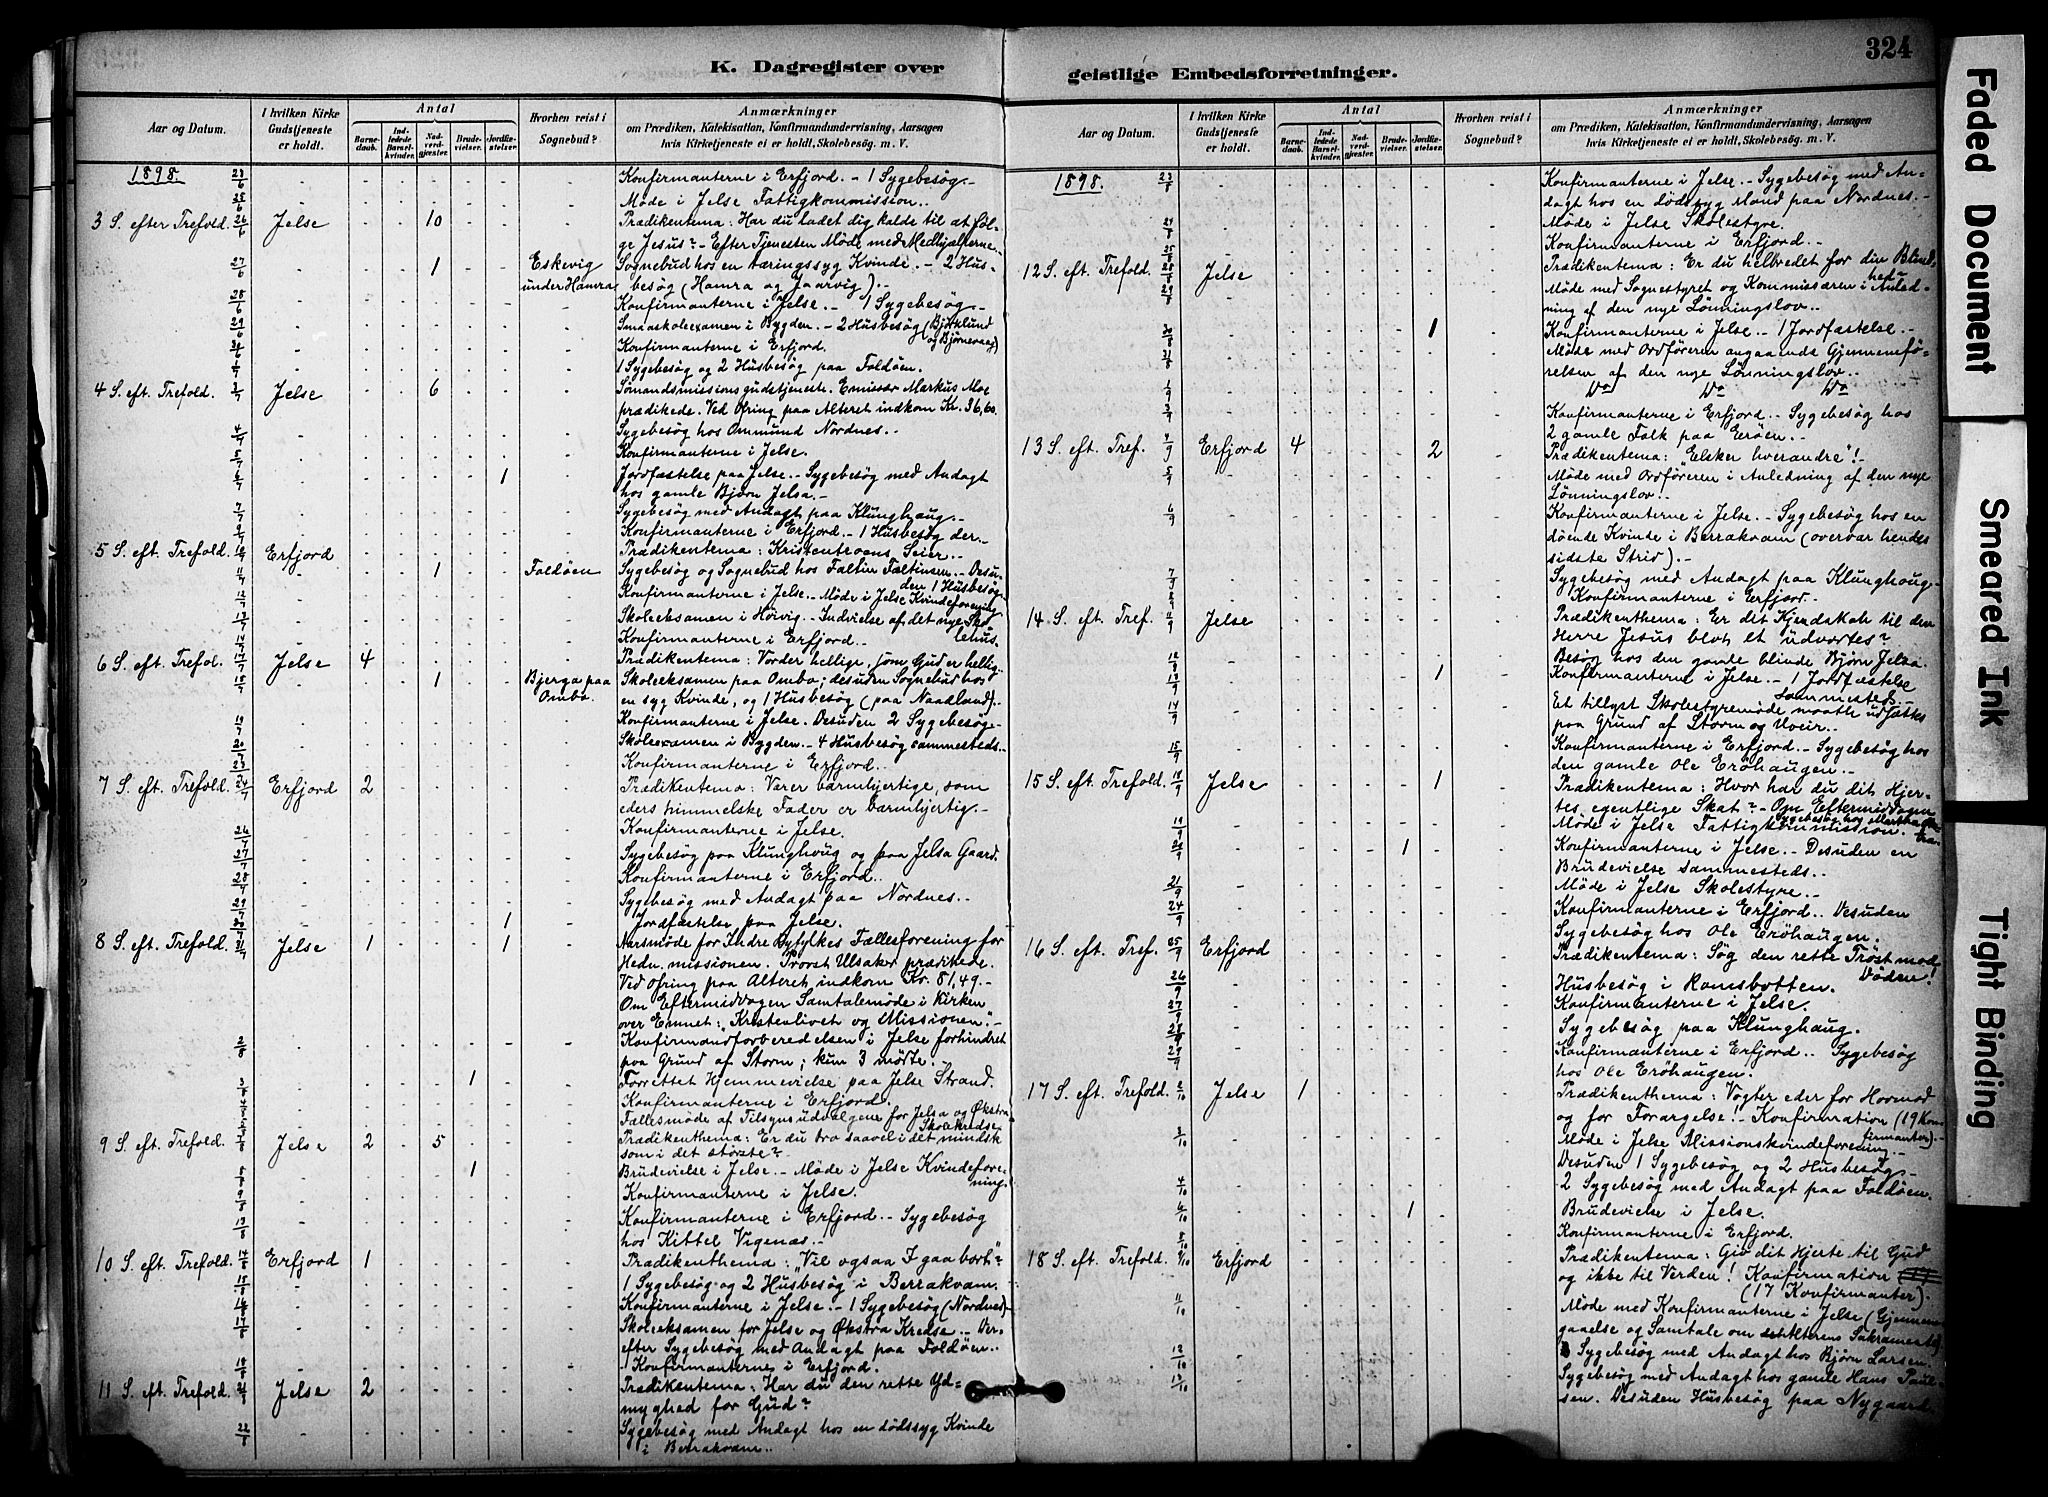 324
K. Dagregister over geistlige Embedsforretninger.
Aar og Datum.
I hvilken Kirke Gudstjeneste er holdt.
Antal
Barnedaab.
Indledede Barselkvinder.
Nadverdgjester.
Brudevielser.
Jordfæstelser.
Hvorhen reist i Sognebud?
Anmærkninger
om Prædiken, Katekisation, Konfirmandundervisning, Aarsagen
hvis Kirketjeneste ei er holdt, Skolebesøg. m. V.
1898. 23/6 Konfirmanterne i Erfjord. - 1 Sygebesøg.-
25/6 Møde i Jelse Fattigkommission..
3 S. efter Trefold. 26/6 Jelse 10 Prædikentema: Har du ladet dig kalde til at føl-
ge Jesus? - Efter Tjenesten Møde med Medhjælperne.
27/6 1 Eskevig Sognebud hos en tæringssyg Kvinde. - 2 Hus-
under Hamra besøg (Hamra og Jaarvig).-
28/6 Konfirmanterne i Jelse. - 1 Sygebesøg.-
29/6 Smaaskoleexamen i Bygden. - 2 Husbesøg (Bjørklund
og Bjørnevaag)
Konfirmanterne i Erfjord.
1/7 1 Sygebesøg og 2 Husbesøg paa Foldøen.
4 S. eft. Trefold. 3/7 Jelse 6 Sømandsmissionsgudstjeneste. Emissær Markus Moe
prædikede. Ved Ofring paa Alteret indkom Kr. 36,60.
4/7 Sygebesøg hos Ommund Nordnes.-
5/7 Konfirmanterne i Jelse.
6/7 1 Jordfæstelse paa Jelse. - Sygebesøg med Andagt
hos gamle Bjørn Jelsa.-
7/7 Sygebesøg med Andagt paa Klunghaug.-
9/7 Konfirmanterne i Erfjord. - 1 Husbesøg der.-
5 S. eft. Trefold. 10/7 Erfjord Prædikentema: Kristentroens Seier..
11/7 1 Foldøen Sygebesøg og Sognebud hos Faltin Faltinsen. - Desu-
den 1 Husbesøg.
12/7 Konfirmanterne i Jelse. - Møde i Jelse Kvindeforening
13/7 Skoleeksamen i Høivig. - Indvielse af det nye Sko-
lehus.
14/7 Konfirmanterne i Erfjord..
6 S. eft. Trefol. 17/7 Jelse 4 Prædikentema: Vorder hellige, som Gud er hellig.-
18/7 1 Bjerga paa Skoleeksamen paa Ombo; desuden Sognebud hos
Ombo. en syg Kvinde, og 1 Husbesøg (paa Naadland).-
19/7 Konfirmanterne i Jelse. Desuden 2 Sygebesøg.-
20/7 Skoleexamen i Bygden. - 4 Husbesøg sammesteds..
23/7 Konfirmanterne i Erfjord..
7 S. eft. Trefold. 24/7 Erfjord 2 Prædikentema: Værer barmhjertige, som
eders himmelske Fader er barmhjertig.-
26/7 Konfirmanterne i Jelse.
27/7 Sygebesøg paa Klunghoug og paa Jelsa Gaard.
28/7 Konfirmanterne i Erfjord..
29/7 Sygebesøg med Andagt paa Nordnes..
30/7 1 Jordfæstelse paa Jelse.
8 S. eft. Trefold. 31/7 Jelse 1 1 Aarsmøde for Indre Ryfylkes Fællesforening for
Hedn. missionen. Provst Ulsaker prædikede.
Ved Ofring paa Alteret indkom Kr. 81,49.-
Om Eftermiddagen Samtalemøde i Kirken
over Emnet: "Kristenlivet og Missionen".-
2/8 Konfirmandforberedelsen i Jelse forhindret
paa Grund af Storm; kun 3 mødte.-
3/8 1 Forrettet Hjemmevielse paa Jelse Strand.
4/8 Konfirmanterne i Erfjord.
Fællesmøde af Tilsynsudvalgene for Jelsa og Økstra
Skolekredse
9 S. eft. Trefold. 7/8 Jelse 2 5 Prædikenthema: Er du tro saavel i det mindste
som i det største?-
8/8 1 Brudevielse i Jelse. - Møde i Jelse Kvindefore-
ning.
9/8 Konfirmanterne i Jelse.
13/8 Konfirmanterne i Erfjord. - Sygebesøg
hos Kittel Vigenæs..
10 S. eft. Trefold. 14/8 Erfjord 1 Prædikenthema: "Vil ogsaa I gaa bort"?
15/8 1 Sygebesøg og 2 Husbesøg i Berrakvam.
16/8 Konfirmanterne i Jelse. - 1 Sygebesøg (Nordnes).-
17/8 Skoleeksamen for Jelse og Økstra Kredse. - Der-
efter Sygebesøg med Andagt paa Foldøen..
18/8 Konfirmanterne i Erfjord.
11 S. eft. Trefold. 21/8 Jelse 2 Prædikentema: Har du den rette Yd-
myghed for Gud?
22/8 Sygebesøg med Andagt hos en dødssyg Kvinde
i Berrakvam..
Aar og Datum.
I hvilken Kirke Gudstjeneste er holdt.
Antal
Barnedaab.
Indledede Barselkvinder.
Nadverdgjester.
Brudevielser.
Jordfæstelser.
Hvorhen reist i Sognebud?
Anmærkninger
om Prædiken, Katekisation, Konfirmandundervisning, Aarsagen
hvis Kirketjeneste ei er holdt, Skolebesøg. m. V.
1898. 23/8 Konfirmanterne i Jelse. - Sygebesøg med An-
dagt hos en dødssyg Mand paa Nordnes.-
24/8 Møde i Jelse Skolestyre.
25/8 Konfirmanterne i Erfjord.-
12 S. eft. Trefold. 28/8 Jelse Prædikentema: Er du helbredet for din Blind-
hed?
29/8 Møde med Sognestyret og Kommissæren i Anled-
ning af den nye Lønningslov..
30/8 1 Konfirmanterne i Jelse. - 1 Jordfæstelse.-
31/8 Møde med Ordføreren angaaende Gjennemfø-
relsen af den nye Lønningslov..
1/9 Do Do Do
3/9 Konfirmanterne i Erfjord. - Sygebesøg hos
2 gamle Folk paa Erøen.-
13 S. eft. Tref. 4/9 Erfjord 4 2 Prædikentema: "Elsker hverandre"!-
5/9 Møde med Ordføreren i Anledning af den nye
Lønningslov!-
6/9 Konfirmanterne i Jelse. - Sygebesøg hos en
døende Kvinde i Berrakvam (overvar hendes
sidste Strid).-
7/9 Sygebesøg med Andagt paa Klunghoug.-
Konfirmanterne i Erfjord.-
14 S. eft. Tref. 11/9 Jelse Prædikenthema: Er dit Kjendskab til den
Herre Jesus blot et udvortes?
12/9 Besøg hos den gamle blinde Bjørn Jelsa.
13/9 1 Konfirmanterne i Jelse. - 1 Jordfæstelse
sammesteds.-
14/9 Et tillyst Skolestyremøde maatte udsættes
paa Grund af Storm og Uveir..
15/9 Konfirmanterne i Erfjord. - Sygebesøg hos
den gamle Ole Erøhaugen.-
15 S. eft. Trefold. 18/9 Jelse 1 Prædikentema: Hvor har du dit Hjer-
tes egentlige Skat? - Om Eftermiddagen
Sygebesøg hos Martha
19/9 Møde i Jelse Fattigkommission.
20/9 1 Konfirmanterne i Jelse. - Desuden en
Brudevielse sammesteds..
21/9 Møde i Jelse Skolestyre.-
24/9 Konfirmanterne i Erfjord.. Desuden
Sygebesøg hos Ole Erøhaugen.
16 S. eft. Tref. 25/9 Erfjord Prædikentema: Søg den rette Trøst mod
Døden!
26/9 Husbesøg i Ramsbotten.
27/9 Konfirmanterne i Jelse.
28/9 Sygebesøg paa Klunghaug.
29/9 Konfirmanterne i Erfjord.. Sygebesøg
hos Ole Erøhaugen.
17 S. eft. Trefold. 2/10 Jelse 1 Prædikenthema: Vogter eder for Hovmod
og for Forargelse! - Konfirmation (19 Kon-
firmanter).-
3/10 Møde i Jelse Missionskvindeforening.-
Desuden 1 Sygebesøg og 2 Husbesøg.-
4/10 2 Sygebesøg med Andagt paa Foldøen.
6/10 1 Brudevielse i Jelse.
8/10 Konfirmanterne i Erfjord.
18 S. eft. Trefold. 9/10 Erfjord Prædikentema: Giv dit Hjerte til Gud
og ikke til Verden! Konfirmation
(17 Konfirmanter).
11/10 Møde med Konfirmanterne i Jelse (Gjennem-
gaaelse og Samtale om Alterens Sakramente)
12/10 Sygebesøg med Andagt hos Bjørn Larsen.
13/10 Sygebesøg med Andagt hos gamle Hans Paul-
sen. Desuden Husbesøg paa Nygaard.
Faded Document
Smeared Ink
Tight Binding